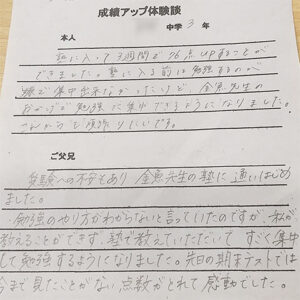 成績アップ体験談
中学 3 年
本人
塾に入って3週間で26点UPすることが
できました。塾に入る前は勉強するのが
嫌で集中出来なかったけど、金魚先生の
おかげで勉強に集中できるようになりました。
これからも頑張りたいです。
ご父兄
受験への不安もあり金魚先生の塾に通いはじめ
ました。
勉強のやり方がわからないと言っていたのですが、私が
教えることができず、塾で教えていただいて、すごく集中
して勉強するようになりました。先日の期末テストでは
今まで見たことがない点数がとれて感動でした。